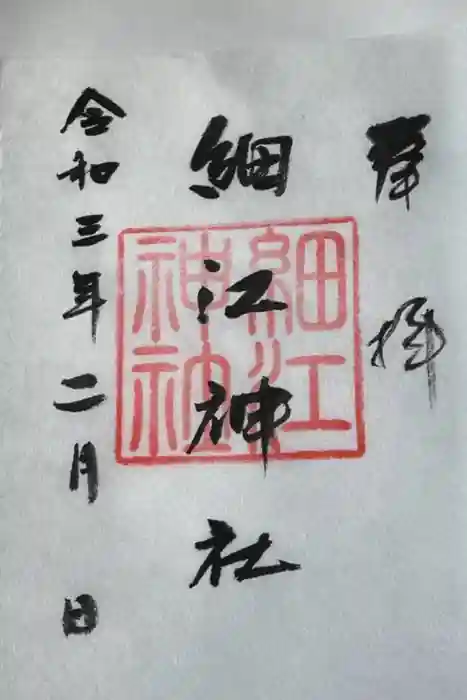 奉拝
細江神社
細江
神社
令和三年二月 日